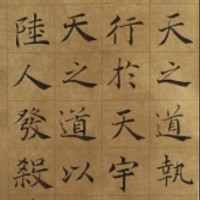 天之道執
行於天宇
天之道以
陸人發殺